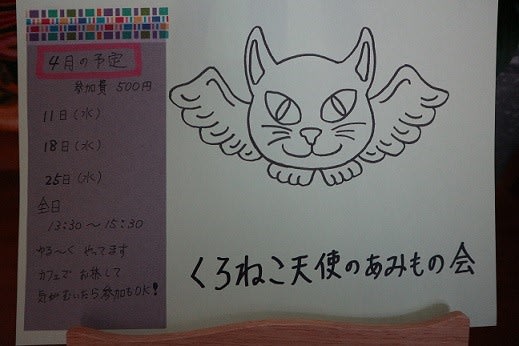 4月の予定
参加費 500円
11日(水)
18日(水)
25日(水)
全日
13:30〜15:30
ゆる〜く やってます
カフェで お茶して
気がむいたら参加もOK!
くろねこ天使のあみもの会